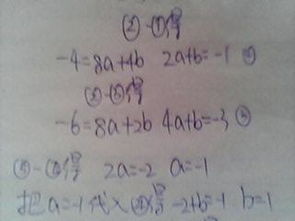 ②-①得
-4=8a+4b 2a+b=-1 ④
②-③得
-6=8a+2b 4a+b=-3 ⑤
⑤-④得 2a=-2 a=-1
把a=-1代入④得 -2+b=-1 b=1